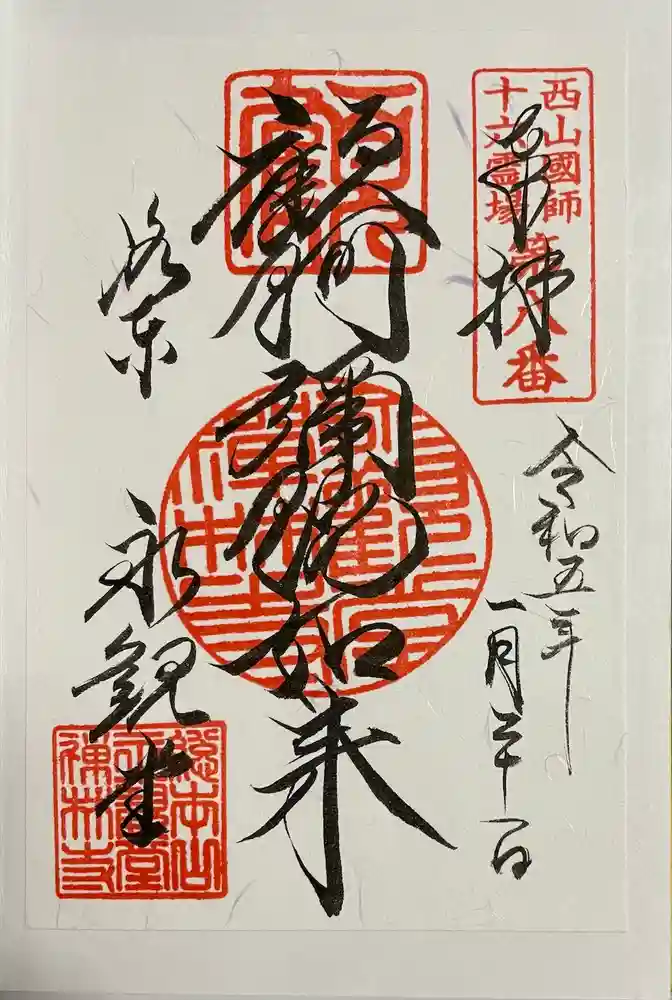 西山國師
十六霊場
第八番
奉拝
令和五年
一月二十一日
顧阿彌陀如来
洛東
永観堂
總本山
永觀堂
禪林寺